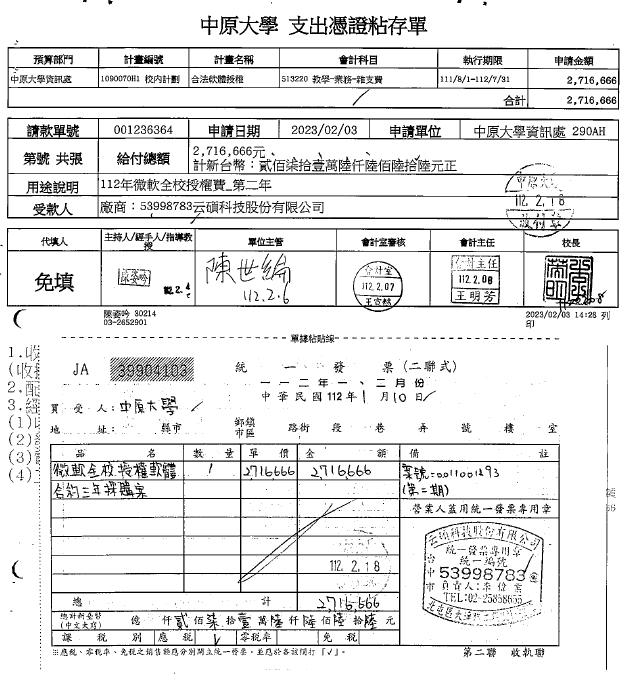 中原大學 支出憑證粘存單
預算部門 計畫編號 計畫名稱 會計科目 執行期限 申請金額
中原大學資訊處 1090070H1 校內計劃 合法軟體授權 513220 教學-業務-雜支費 111/8/1-112/7/31 2,716,666
合計 2,716,666
請款單號 001236364 申請日期 2023/02/03 申請單位 中原大學資訊處 290AH
第號 共張 給付總額 2,716,666元、
計新台幣：貳佰柒拾壹萬陸仟陸佰陸拾陸元正
用途說明 112年微軟全校授權費_第二年
受款人 廠商：53998783云碩科技股份有限公司
112. 2. 18
代填人 主持人/經手人/指導教授 單位主管 會計室審核 會計主任 校長
免填 陳姿吟 112.2.4 陳世綸 112.2.6 會計室 112.2.07 會計主任 112.2.08 王明芳
陳姿吟 30214
03-2652901
2023/02/03 14:28 列印
單據粘貼線
1.收
(收
2.配
3.經
(1)
(2)
(3)
(4)
JA 39904103 統一發票(二聯式)
一一二年一、二月份
中華民國112年1月10日
買受人：中原大學
地址： 縣市 鄉鎮市區 路街 段 巷 弄 號 樓 室
品名 數量 單價 金額 備註
微軟全校授權軟體 1 2716666 2,716,666 案號=0011001293
合約三年採購案 (第二期)
營業人蓋用統一發票專用章
云碩科技股份有限公司
統一發票專用章
統一編號
53998783
台中市
負責人：李位室
TEL:02-25858655
112. 2. 18
總計 2,716,666
總計新臺幣(中文大寫) 億 仟 貳佰 柒拾 壹萬 陸仟 陸佰 陸拾 陸元
課稅別 應稅 √ 零稅率 免稅
※應稅、零稅率、免稅之銷售額應分別開立統一發票，並應於各該欄打「√」。
第二聯 收執聯